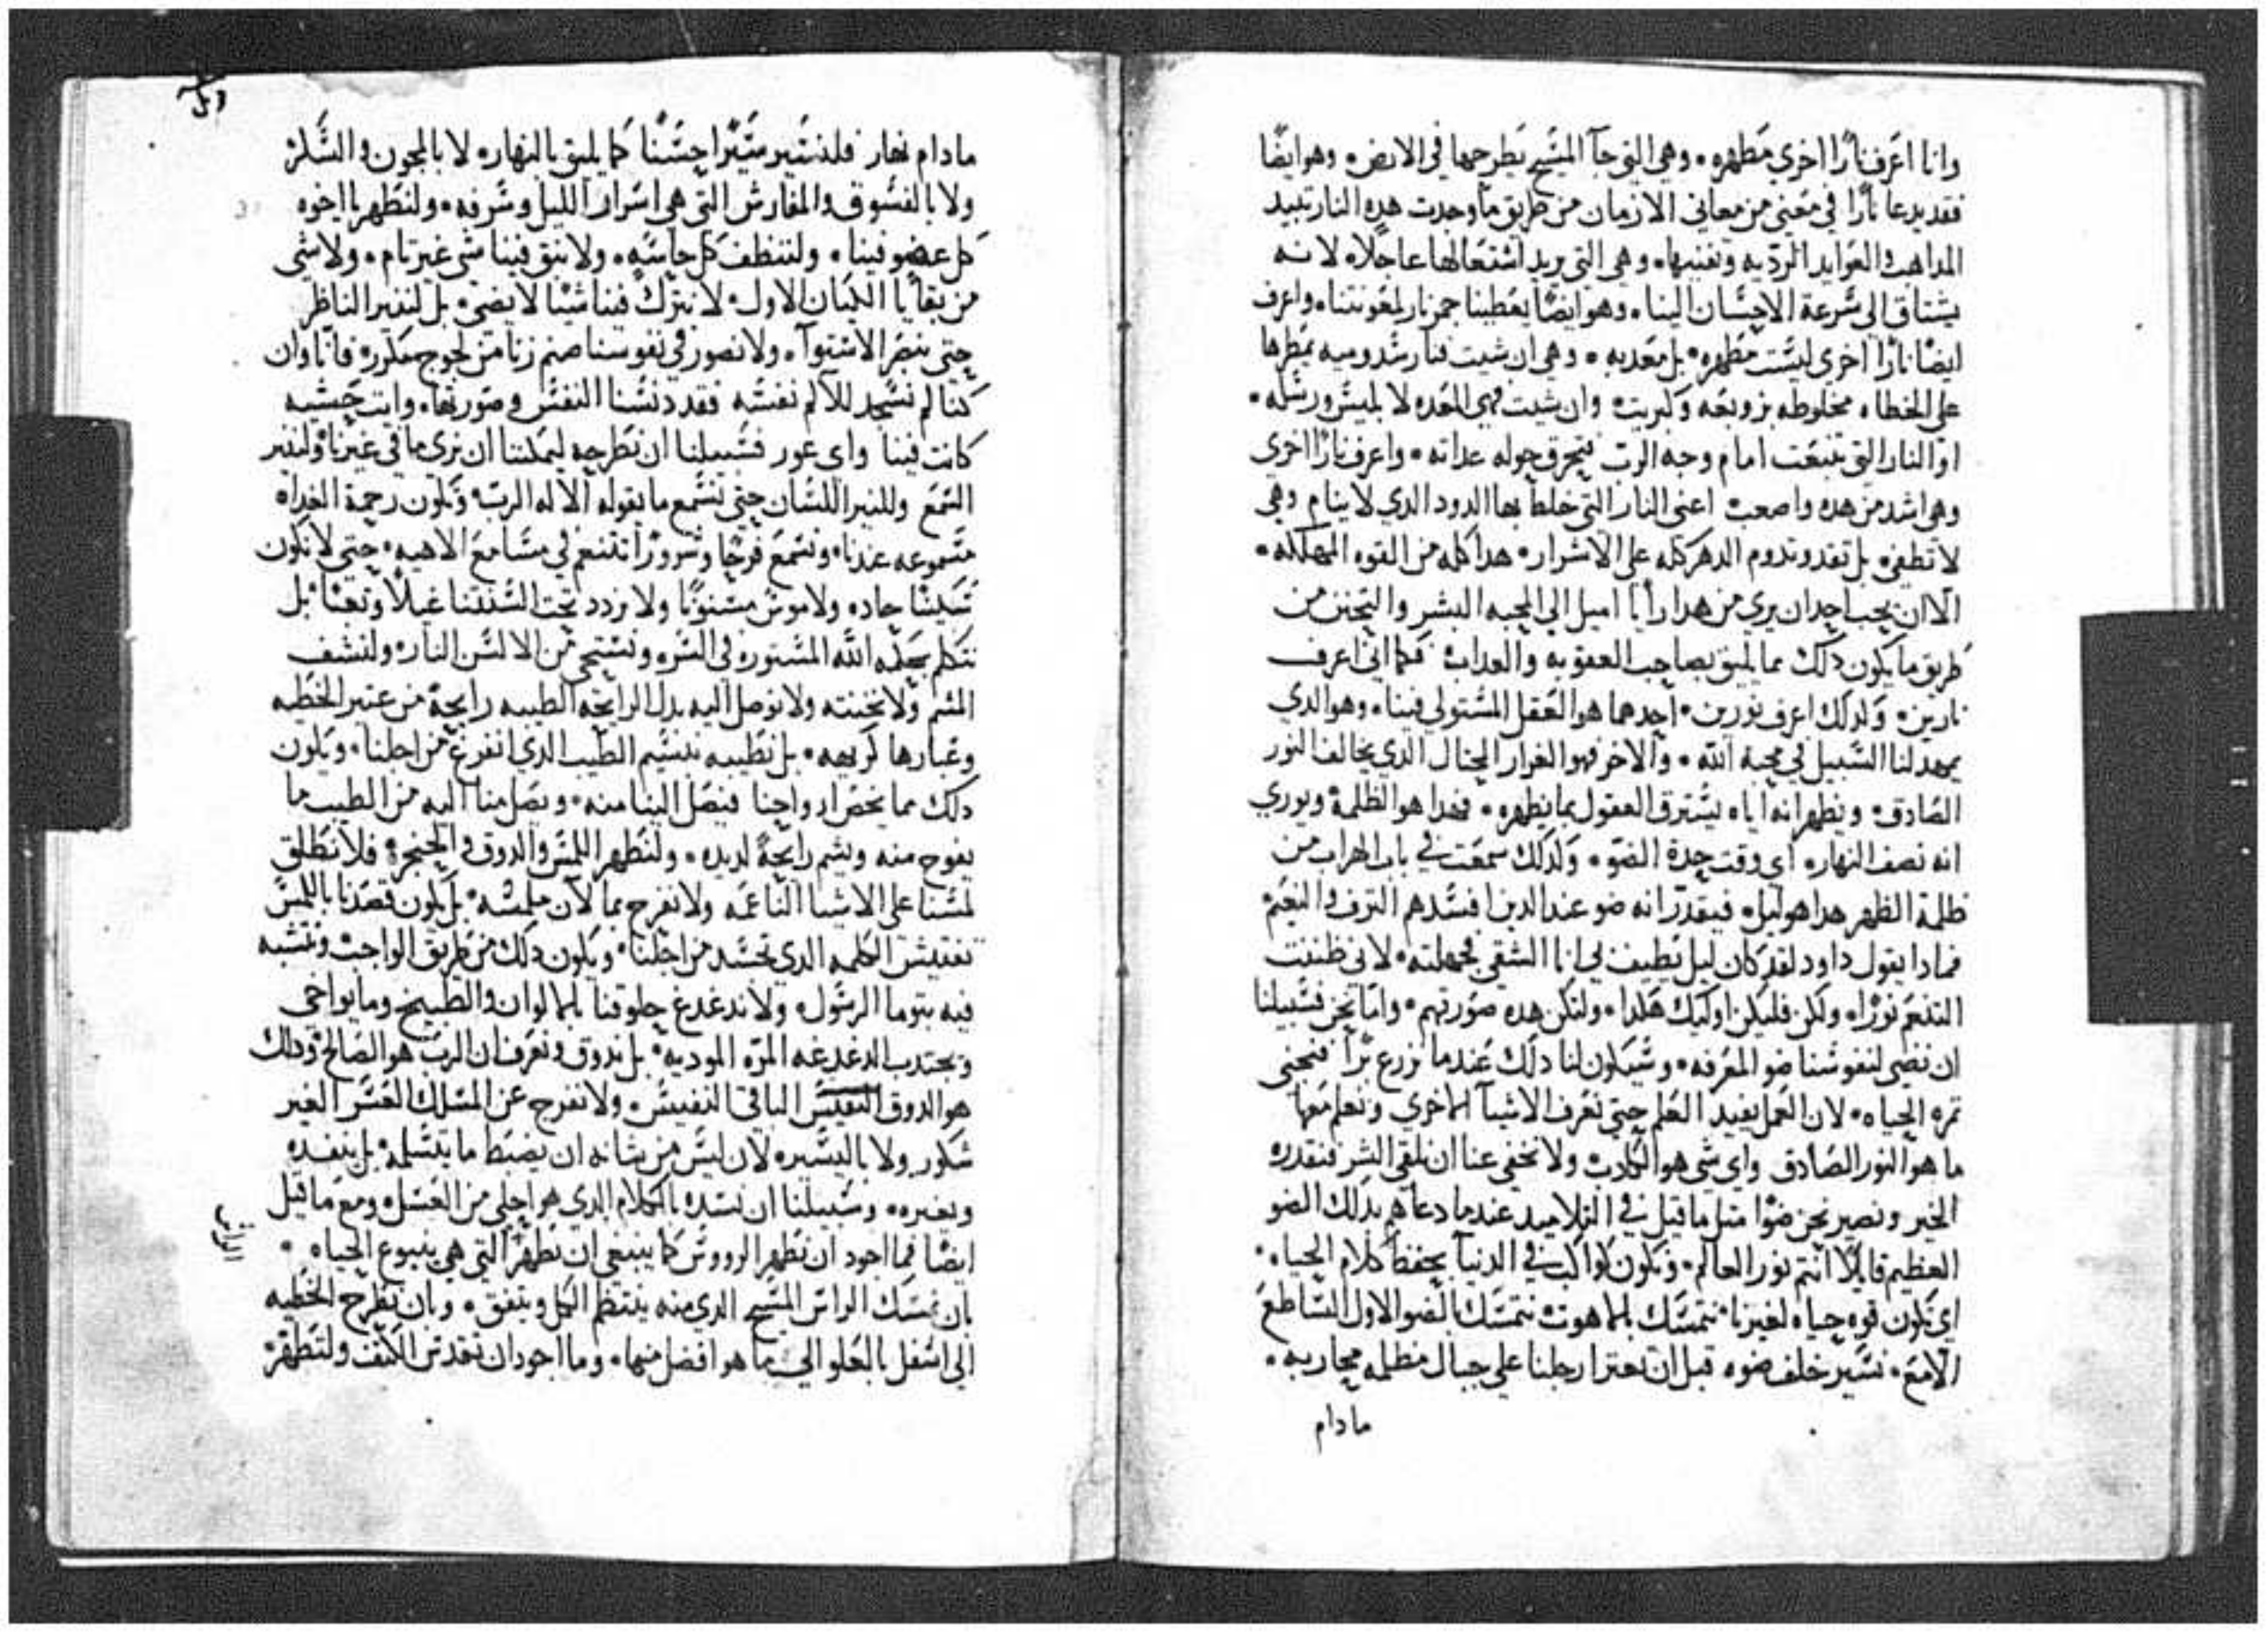 وانا اعرف نارًا اخرى مطهره. وهي التي جآ المسيح يطرحها في الارض. وهو ايضًا
فقد يدعا نارًا في معني من معاني الازمان من طريق ما وجدت هده النار تبيد
المداهب والعوايد الرديه وتفنيها. وهي التي يريد اشتعالها عاجلاً. لانه
يشتاق الي سرعة الاحسان الينا. وهو ايضًا يعطينا جمر نار لمعونتنا. واعرف
ايضًا نارًا اخري ليست مطهره بل معدبه. وهي ان شيت فنار سدوميه يمطرها
علي الخطاه مخلوطه بزوبعه وكبريت. وان شيت فهي المعده لابليس ورسله.
او النار التي تنبعت امام وجه الرب فيحرق حوله عداته. واعرف نارًا اخري
وهي اشد من هده واصعب اعني النار التي خلط بها الدود الدي لا ينام وهي
لا تطفي. بل تقد وتدوم الدهر كله علي الاشرار. هدا كله من القوه المهلكه.
الا ان يحب احد ان يري من هدا رأيا اميل الي المحبه البشر والتحنن من
طريق ما يكون دلك مما يليق بصاحب العقوبه والعداب. فكما اني اعرف
نارين. ولدلك اعرف نورين. احدهما هو العقل المستولي فينا. وهو الدي
يمهد لنا السبيل في محبة الله. والاخر فهو الغرار المحتال الدي يخالف النور
الصادق. ويظهر انه اياه ليسترق العقول بما يظهره. فهدا هو الظلمة ويوري
انه نصف النهار. اي وقت حدة الضو. ولدلك سمعت في باب الهراب من
ظلمة الظهر هدا هو ليل. فيقدر انه ضو عند الدين افسدهم الترف والنعيم.
فمادا يقول داود لقد كان ليل يطيف بي انا الشقي بجهلته. لاني ظننت
التنعم نورًا. ولكن فليكن اوليك هكدا. ولتكن هده صورتهم. واما نحن فسبيلنا
ان نضي لنفوسنا ضو المعرفه. وسيكون لنا دلك عندما نزرع برًا فنجني
تمرة الحياه. لان العمل يفيد العلم حتي نعرف الاشيآ الاخري ونعلم معها
ما هو النور الصادق واي شي هو الكادب. ولا نخفي عنا ان نلقي الشر فنقدره
الخير ونصير نحن ضوًا متل ما قيل في التلاميد عندما دعاهم بدلك الضو
العظيم قايلاً انتم نور العالم. ونكون كواكب في الدنيا بحفظ كلام الحياه.
اي نكون قوه حياه لغيرنا. نتمسك بالاهوت. نتمسك بالضو الاول الساطع
الامع. نسير خلف ضوه قبل ان تعتر ارجلنا علي جبال مظلمه محاربه.
مادام
مادام نهار فلنسير سيرًا حسنًا كما يليق بالنهار. لا بالمجون والسكر
ولا بالفسوق والمفارش التي هي اسرار الليل وشرفه. ولنطهر يا اخوه
كل عضو فينا. ولننظف كل حاسه. ولا يبق فينا شي غير تام. ولا شي
من بقايا الكيان الاول. لا نترك فينا شيًا لا يضي. بل لننير الناظر
حتي ينظر الاستوآ. ولا نصور في نفوسنا صنم زنا من لجوج مكرر. فانا وان
كنا لم نسجد للالم نفسه فقد دنسنا النفس وصورتها. وايت خشبه
كانت فينا واي عور فسبيلنا ان نطرحه ليمكننا ان نري ما في غيرنا. ولننير
السمع وللنير اللسان حتي نسمع ما يقوله الاله الرب. وتكون رحمة الغداه
مسموعه عندنا. ونسمع فرحًا وسرورًا تتنعم في مسامع الاهيه. حتي لا نكون
سكينًا حاده ولا موسًا مسنونًا ولا نردد تحت السنتنا غيلاً وتعبًا. بل
نتكلم بحكمة الله المستوره في السر. ونستحي من الالسن النار. ولنشف
الشم ولا نخنته ولا نوصل اليه بدل الرايحه الطيبه رايحةً من عتير الخطيه
وغبارها كريهه. بل نطيبه بنسيم الطيب الدي انفرغ من اجلنا. ويكون
دلك مما يخص ارواحنا فيصل الينا منه. ويصل منا اليه من الطيب ما
يفوح منه ويشم رايحةً لديده. ولنطهر اللمس والدوق والحنجره. فلا نطلق
لمسنا علي الاشيا الناعمه ولا نفرح بما لان ملمسه. بل يكون قصدنا باللمس
تفتيش الكلمه الدي تجسد من اجلنا. ويكون دلك من طريق الواجب ونتشبه
فيه بتوما الرسول. ولا ندغدغ حلوقنا بالالوان والطبيخ وما يواخي
ويجتدب الدغدغه المره الموديه. بل ندوق ونعرف ان الرب هو الصالح ودلك
هو الدوق النفيس الباقي النفيس. ولا نفرج عن المسلك العسر الغير
شكور ولا باليسيره لان ليس من شانه ان يضبط ما يتسلمه. بل ينفده
ويغيره. وسبيلنا ان نسده بالكلام الدي هو احلي من العسل. ومع ما قيل
ايضًا فما اجود ان نطهر الرووس كما ينبغي ان نطهر التي هي ينبوع الحياه.
بان نمسك الراس المسيح الدي منه ينتظم الكل ويتفق. وبان نطرح الخطيه
الي اسفل بالعلو الي ما هو افضل منها. وما اجود ان نقدس الكتف ولنطهره
الراس